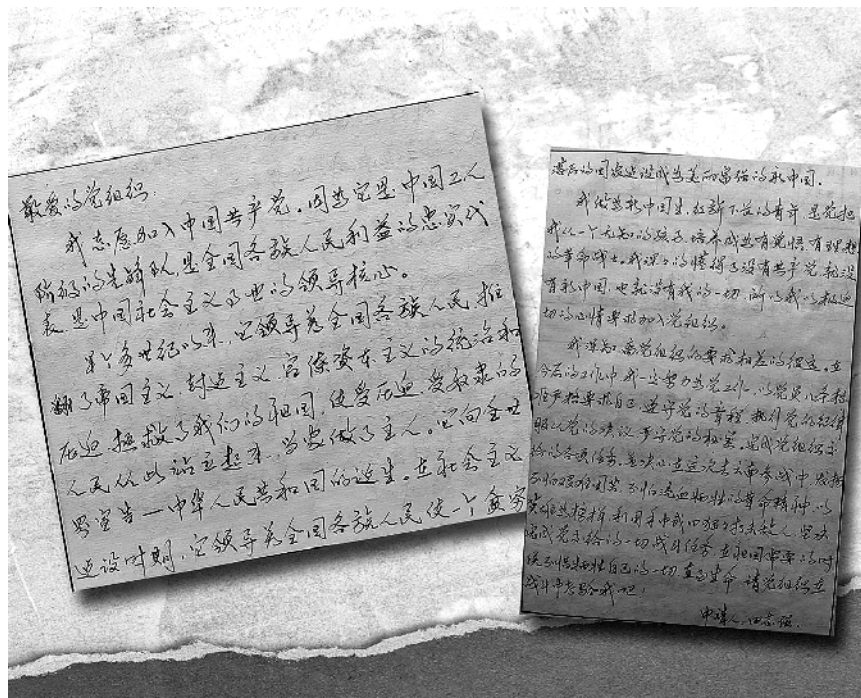 敬爱的党组织:
我志愿加入中国共产党。因为它是中国工人
阶级的先锋队,是全国各族人民利益的忠实代
表,是中国社会主义事业的领导核心。
半个多世纪以来,它领导着全国各族人民,推
翻了帝国主义、封建主义、官僚资本主义的统治和
压迫,拯救了我们的祖国,使受压迫、受奴隶的
人民从此站立起来,当家做了主人。它向全世
界宣告—中华人民共和国的诞生。在社会主义
建设时期,它领导着全国各族人民使一个贫穷
落后的国家建设成为美丽富强的新中国。
我做为新中国生、红旗下长的青年,是党把
我从一个无知的孩子,培养成为有觉悟、有理想
的革命战士。我深深的懂得了没有共产党,就没
有新中国,也就没有我的一切,所以我以极迫
切的心情要求加入党组织。
我深知离党组织的要求相差的很远,在
今后的工作中我一定努力为党工作,以党员八条标
准严格要求自己,遵守党的章程,执行党的纪律
服从党的决议,严守党的秘密,完成党组织交
给的各项任务,坚决在这次去云南参战中,发扬
不怕艰难困苦,不怕流血牺牲的革命精神,以
英雄为榜样,利用手中武器狠狠打击敌人,坚决
完成党交给的一切战斗任务,在祖国需要的时
候不惜牺牲自己的一切直至生命,请党组织在
战斗中考验我吧!
申请人:田志强